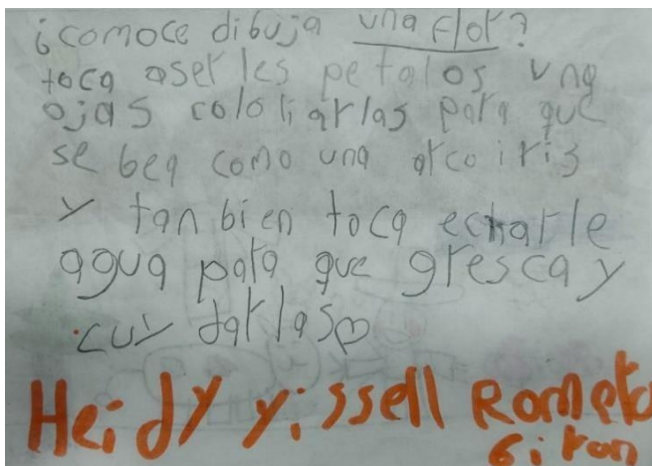 ¿comoce dibuja una flor?
toca aserles petalos una
ojas coloriarlas para que
se bea como una arcoiris
y tan bien toca echarle
agua para que gresca y
cuydarlas
Heidy yissell Romero
Giron